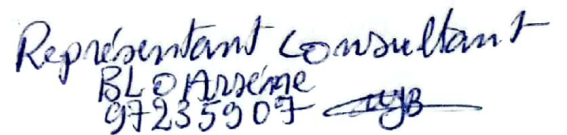 Représentant Consultant
BLO Arsène
97235907